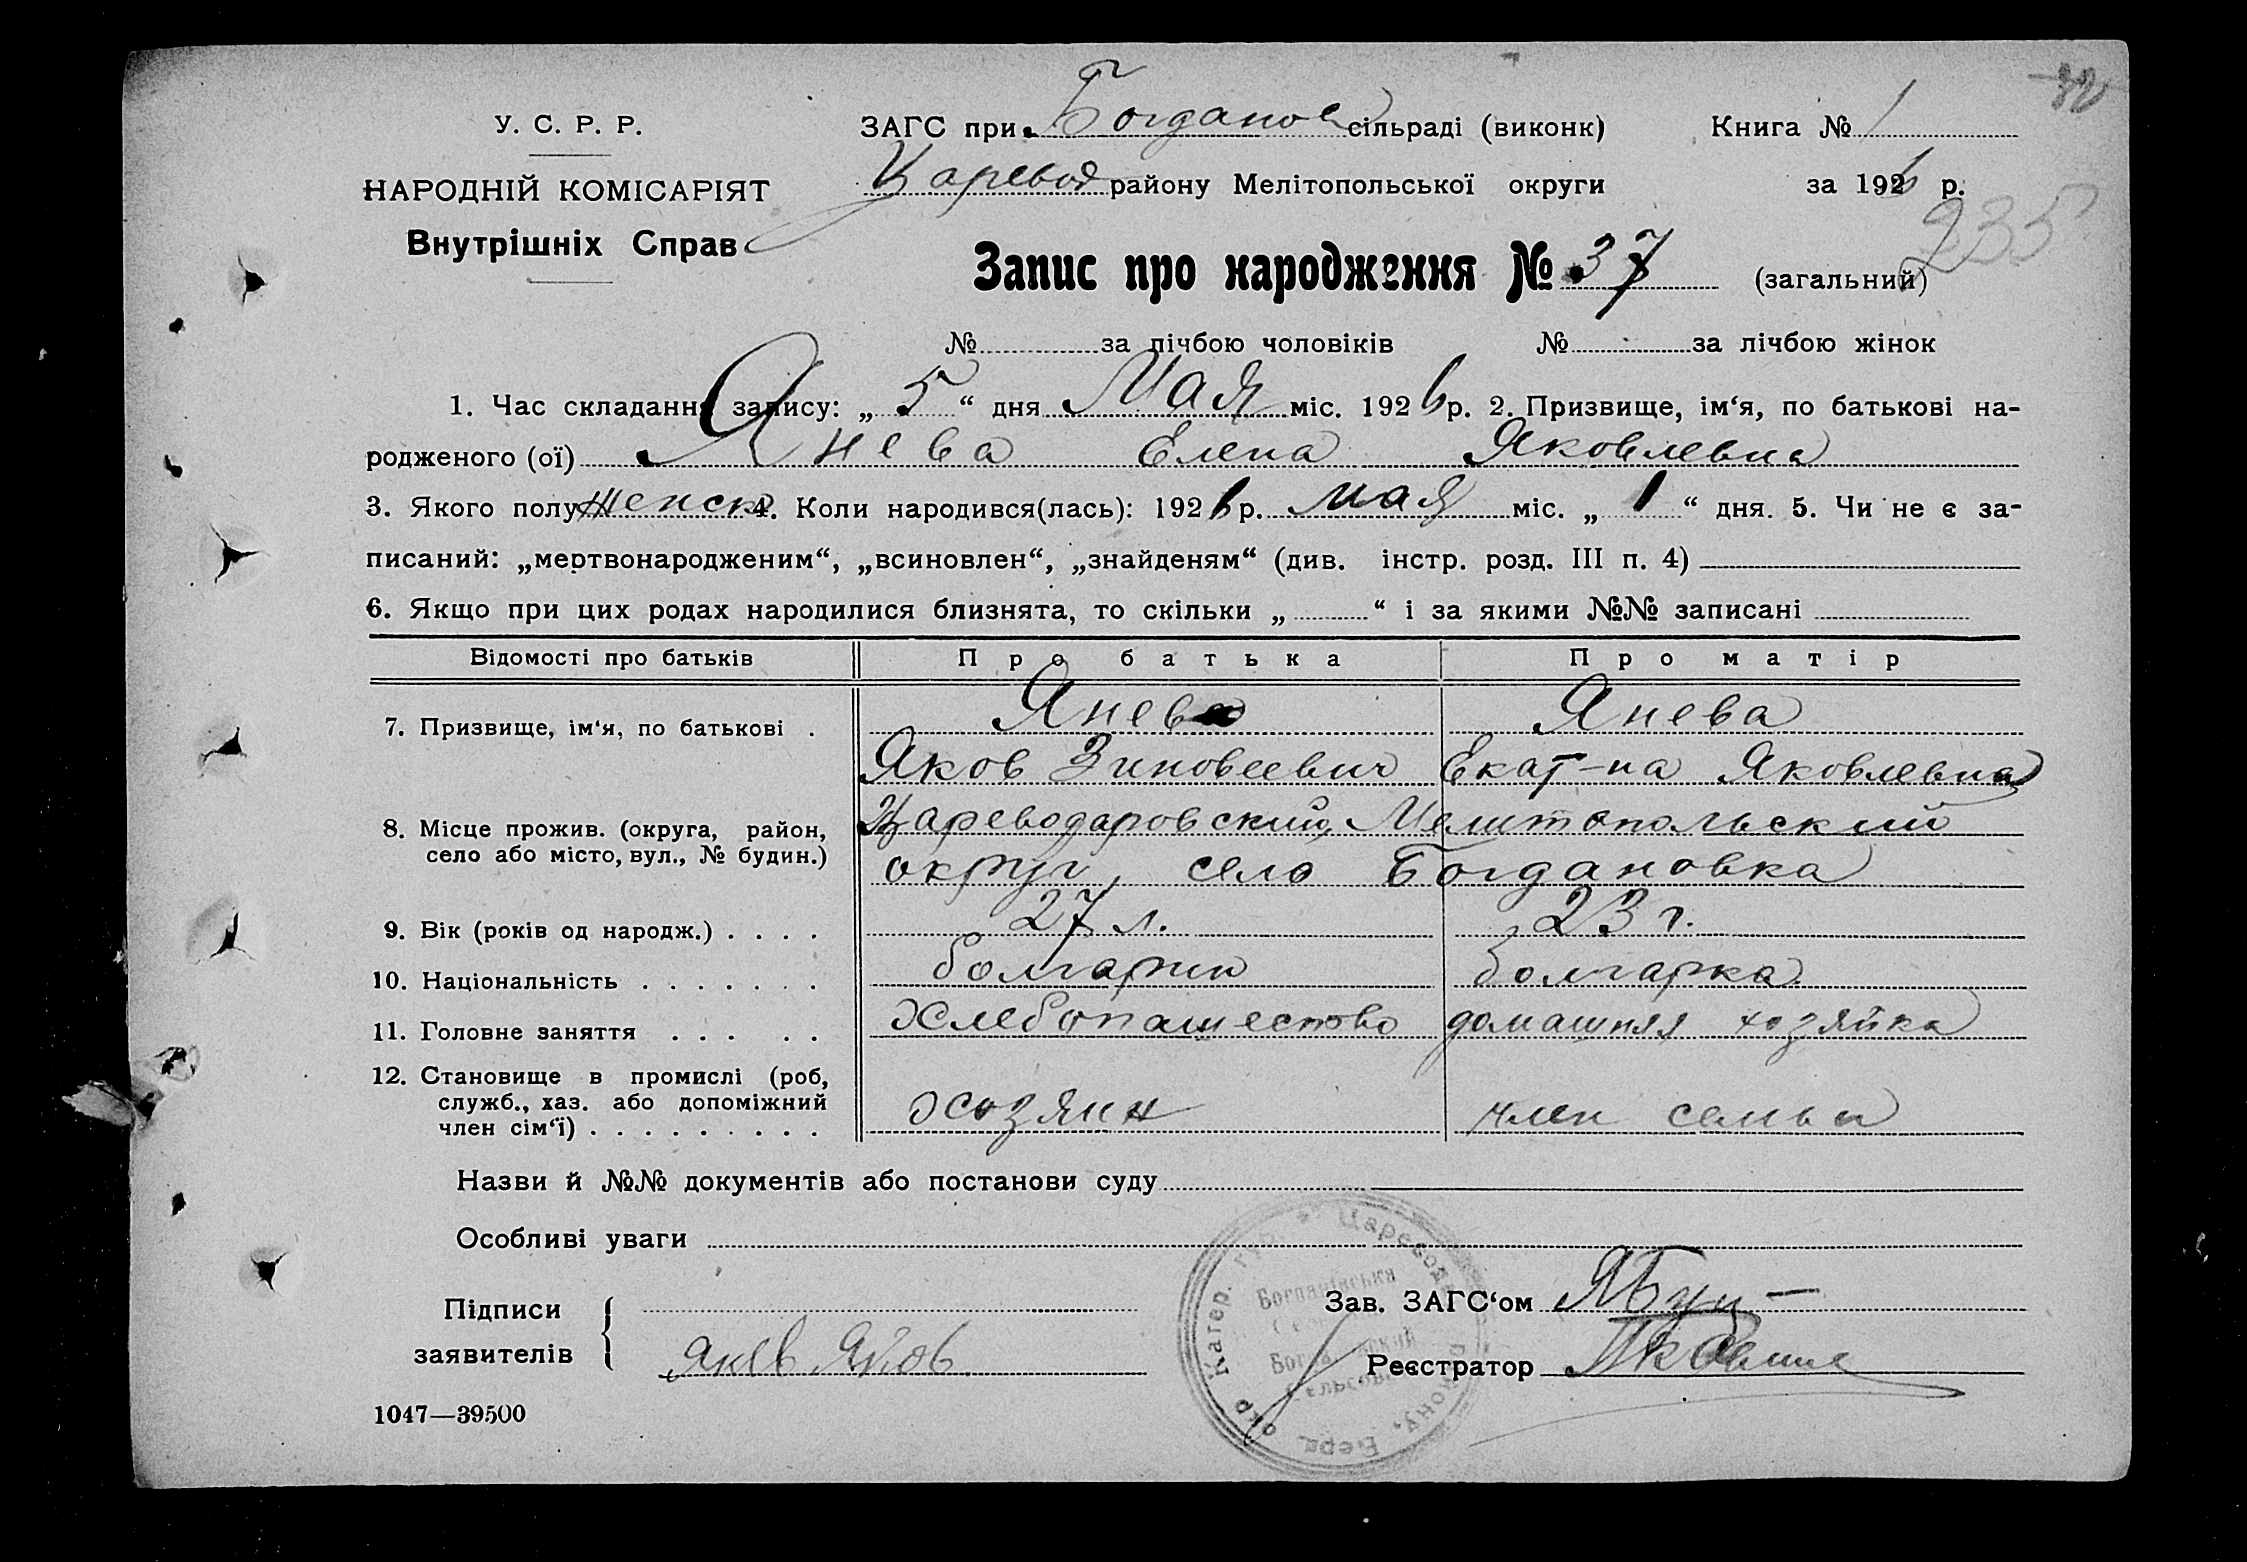 У. С. Р. Р.
НАРОДНІЙ КОМІСАРІЯТ
Внутрішніх Справ
ЗАГС при Богданов сільраді (виконк) Книга № 1
Царевод району Мелітопольської округи за 1926 р.
235
Запис про народження № 37 (загальний)
№ за лічбою чоловіків № за лічбою жінок
1. Час складання запису: „ 5 “ дня Мая міс. 1926 р. 2. Призвище, ім‘я, по батькові на-
родженого (ої) Янева Елена Яковлевна
3. Якого полу женск 4. Коли народився(лась): 1926 р. мая міс. „ 1 “ дня. 5. Чи не є за-
писаний: „мертвонародженим“, „всиновлен“, „знайденям“ (див. інстр. розд. III п. 4)
6. Якщо при цих родах народилися близнята, то скільки „ “ і за якими №№ записані
Відомості про батьків Про батька Про матір
7. Призвище, ім‘я, по батькові . Янев Янева
Яков Зиновеевич Екат-на Яковлевна
8. Місце прожив. (округа, район, Цареводаровский, Мелитопольский
село або місто, вул., № будин.) округ, село Богдановка
9. Вік (років од народж.) . . . . 27 л. 23 г.
10. Національність . . . . . . . болгарин болгарка
11. Головне заняття . . . . . Хлебопашество домашняя хозяйка
12. Становище в промислі (роб,
служб., хаз. або допоміжний хозяин член семьи
член сім‘ї) . . . . . . . . .
Назви й №№ документів або постанови суду
Особливі уваги
Підписи
заявителів Янев Яков
Зав. ЗАГС‘ом
Реєстратор
1047—39500